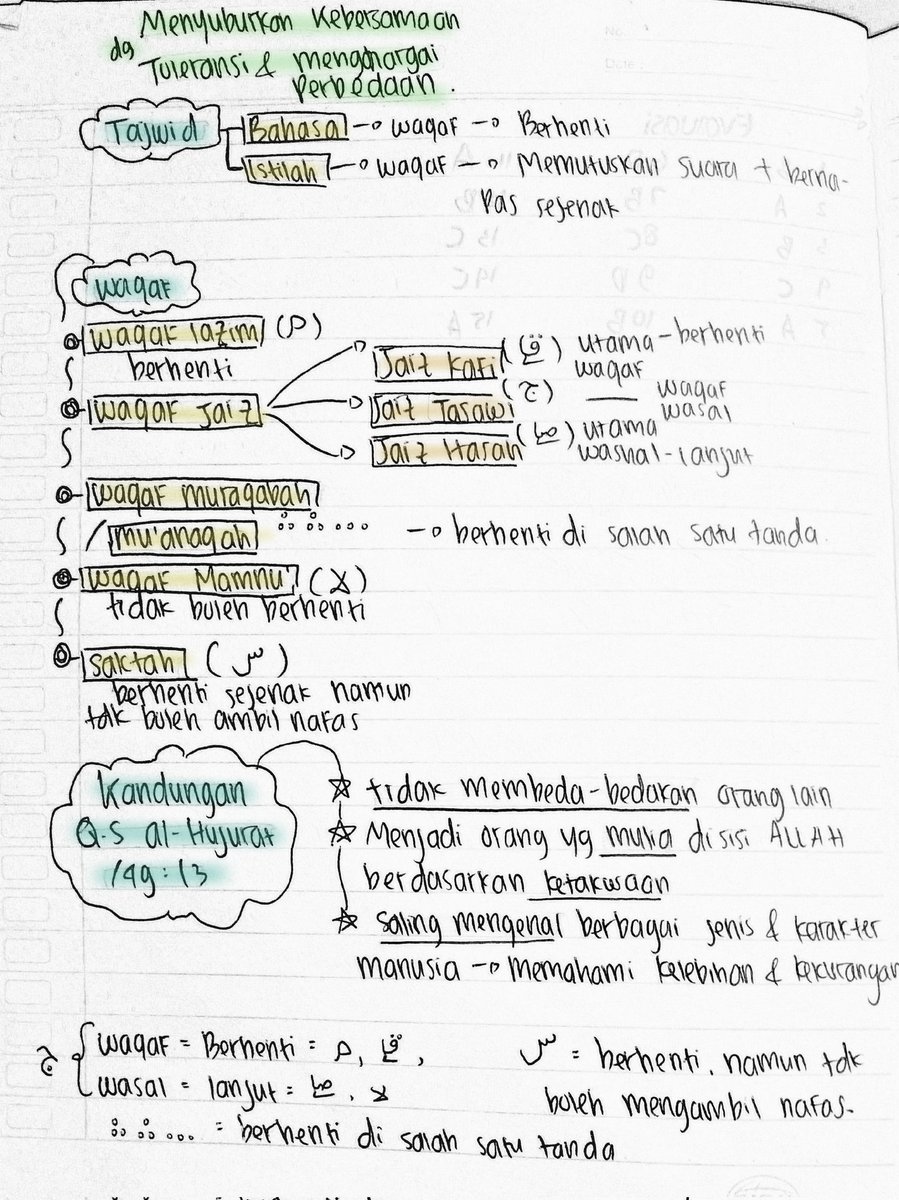 Menyuburkan Kebersamaan
dg Toleransi & menghargai
Perbedaan.
Tajwid
Bahasa → waqaf → Berhenti
Istilah → waqaf → Memutuskan suara + berna-
pas sejenak
waqaf
waqaf lazim (م)
berhenti
waqaf jaiz
Jaiz Kafi (قلى) utama-berhenti
waqaf
Jaiz Tasawi (ج) — waqaf
wasal
Jaiz Hasan (صلى) utama
washal-lanjut
waqaf muraqabah
/mu'anaqah ∴ ∴ ... → berhenti di salah satu tanda.
waqaf Mamnu' (لا)
tidak boleh berhenti
saktah (س)
berhenti sejenak namun
tdk boleh ambil nafas
Kandungan
Q.S al-Hujurat
/49:13
☆ tidak membeda-bedakan orang lain
☆ Menjadi orang yg mulia disisi ALLAH
berdasarkan ketakwaan
☆ saling mengenal berbagai jenis & karakter
manusia → memahami kelebihan & kekurangan
ج { waqaf = Berhenti = م, قلى,
wasal = lanjut = صلى, لا
∴ ∴ ... = berhenti di salah satu tanda
س = berhenti, namun tdk
boleh mengambil nafas.